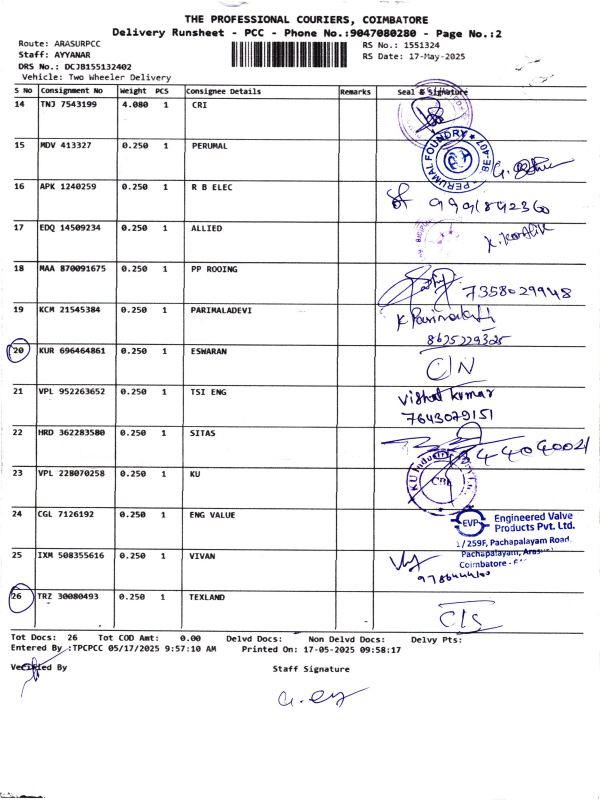 THE PROFESSIONAL COURIERS, COIMBATORE
Delivery Runsheet - PCC - Phone No.:9047080280 - Page No.:2
Route: ARASURPCC
RS No.: 1551324
Staff: AYYANAR
RS Date: 17-May-2025
DRS No.: DCJB155132402
Vehicle: Two Wheeler Delivery
S No Consignment No Weight PCS Consignee Details Remarks Seal & Signature
14 TNJ 7543199 4.080 1 CRI
15 MDV 413327 0.250 1 PERUMAL
PERUMAL FOUNDRY
16 APK 1240259 0.250 1 R B ELEC
9991892360
17 EDQ 14509234 0.250 1 ALLIED
K. Karthik
18 MAA 870091675 0.250 1 PP ROOING
7358029948
19 KCM 21545384 0.250 1 PARIMALADEVI
8675229325
20 KUR 696464861 0.250 1 ESWARAN
C/N
21 VPL 952263652 0.250 1 TSI ENG
Vishal kumar
7643079151
22 HRD 362283580 0.250 1 SITAS
44040021
23 VPL 228070258 0.250 1 KU
KU Industry
CBE
24 CGL 7126192 0.250 1 ENG VALUE
EVP Engineered Valve
Products Pvt. Ltd.
1/259F, Pachapalayam Road,
Pachapalayam, Arasur
Coimbatore -
25 IXM 508355616 0.250 1 VIVAN
26 TRZ 30080493 0.250 1 TEXLAND
C/S
Tot Docs: 26 Tot COD Amt: 0.00 Delvd Docs: Non Delvd Docs: Delvy Pts:
Entered By :TPCPCC 05/17/2025 9:57:10 AM Printed On: 17-05-2025 09:58:17
Verified By Staff Signature